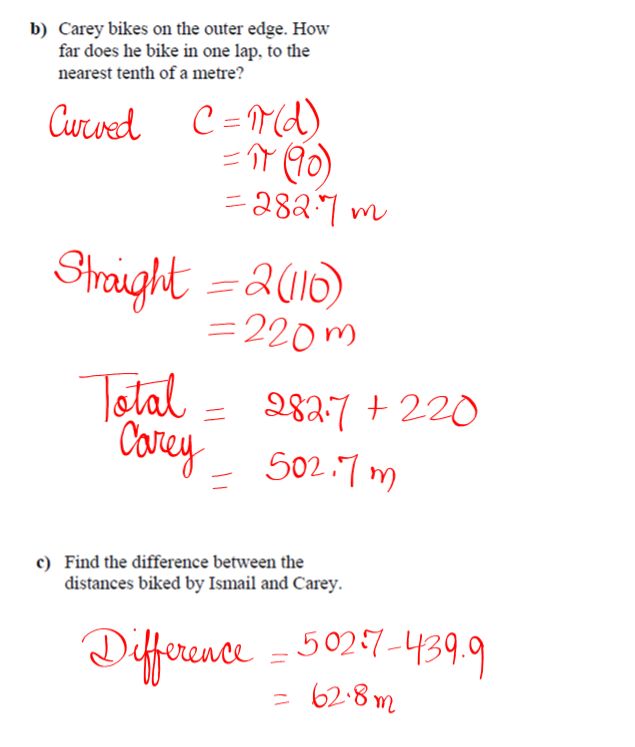 b) Carey bikes on the outer edge. How
far does he bike in one lap, to the
nearest tenth of a metre?
Curved C = π(d)
= π(90)
= 282.7 m
Straight = 2(110)
= 220 m
Total = 282.7 + 220
Carey
= 502.7 m
c) Find the difference between the
distances biked by Ismail and Carey.
Difference = 502.7 - 439.9
= 62.8 m